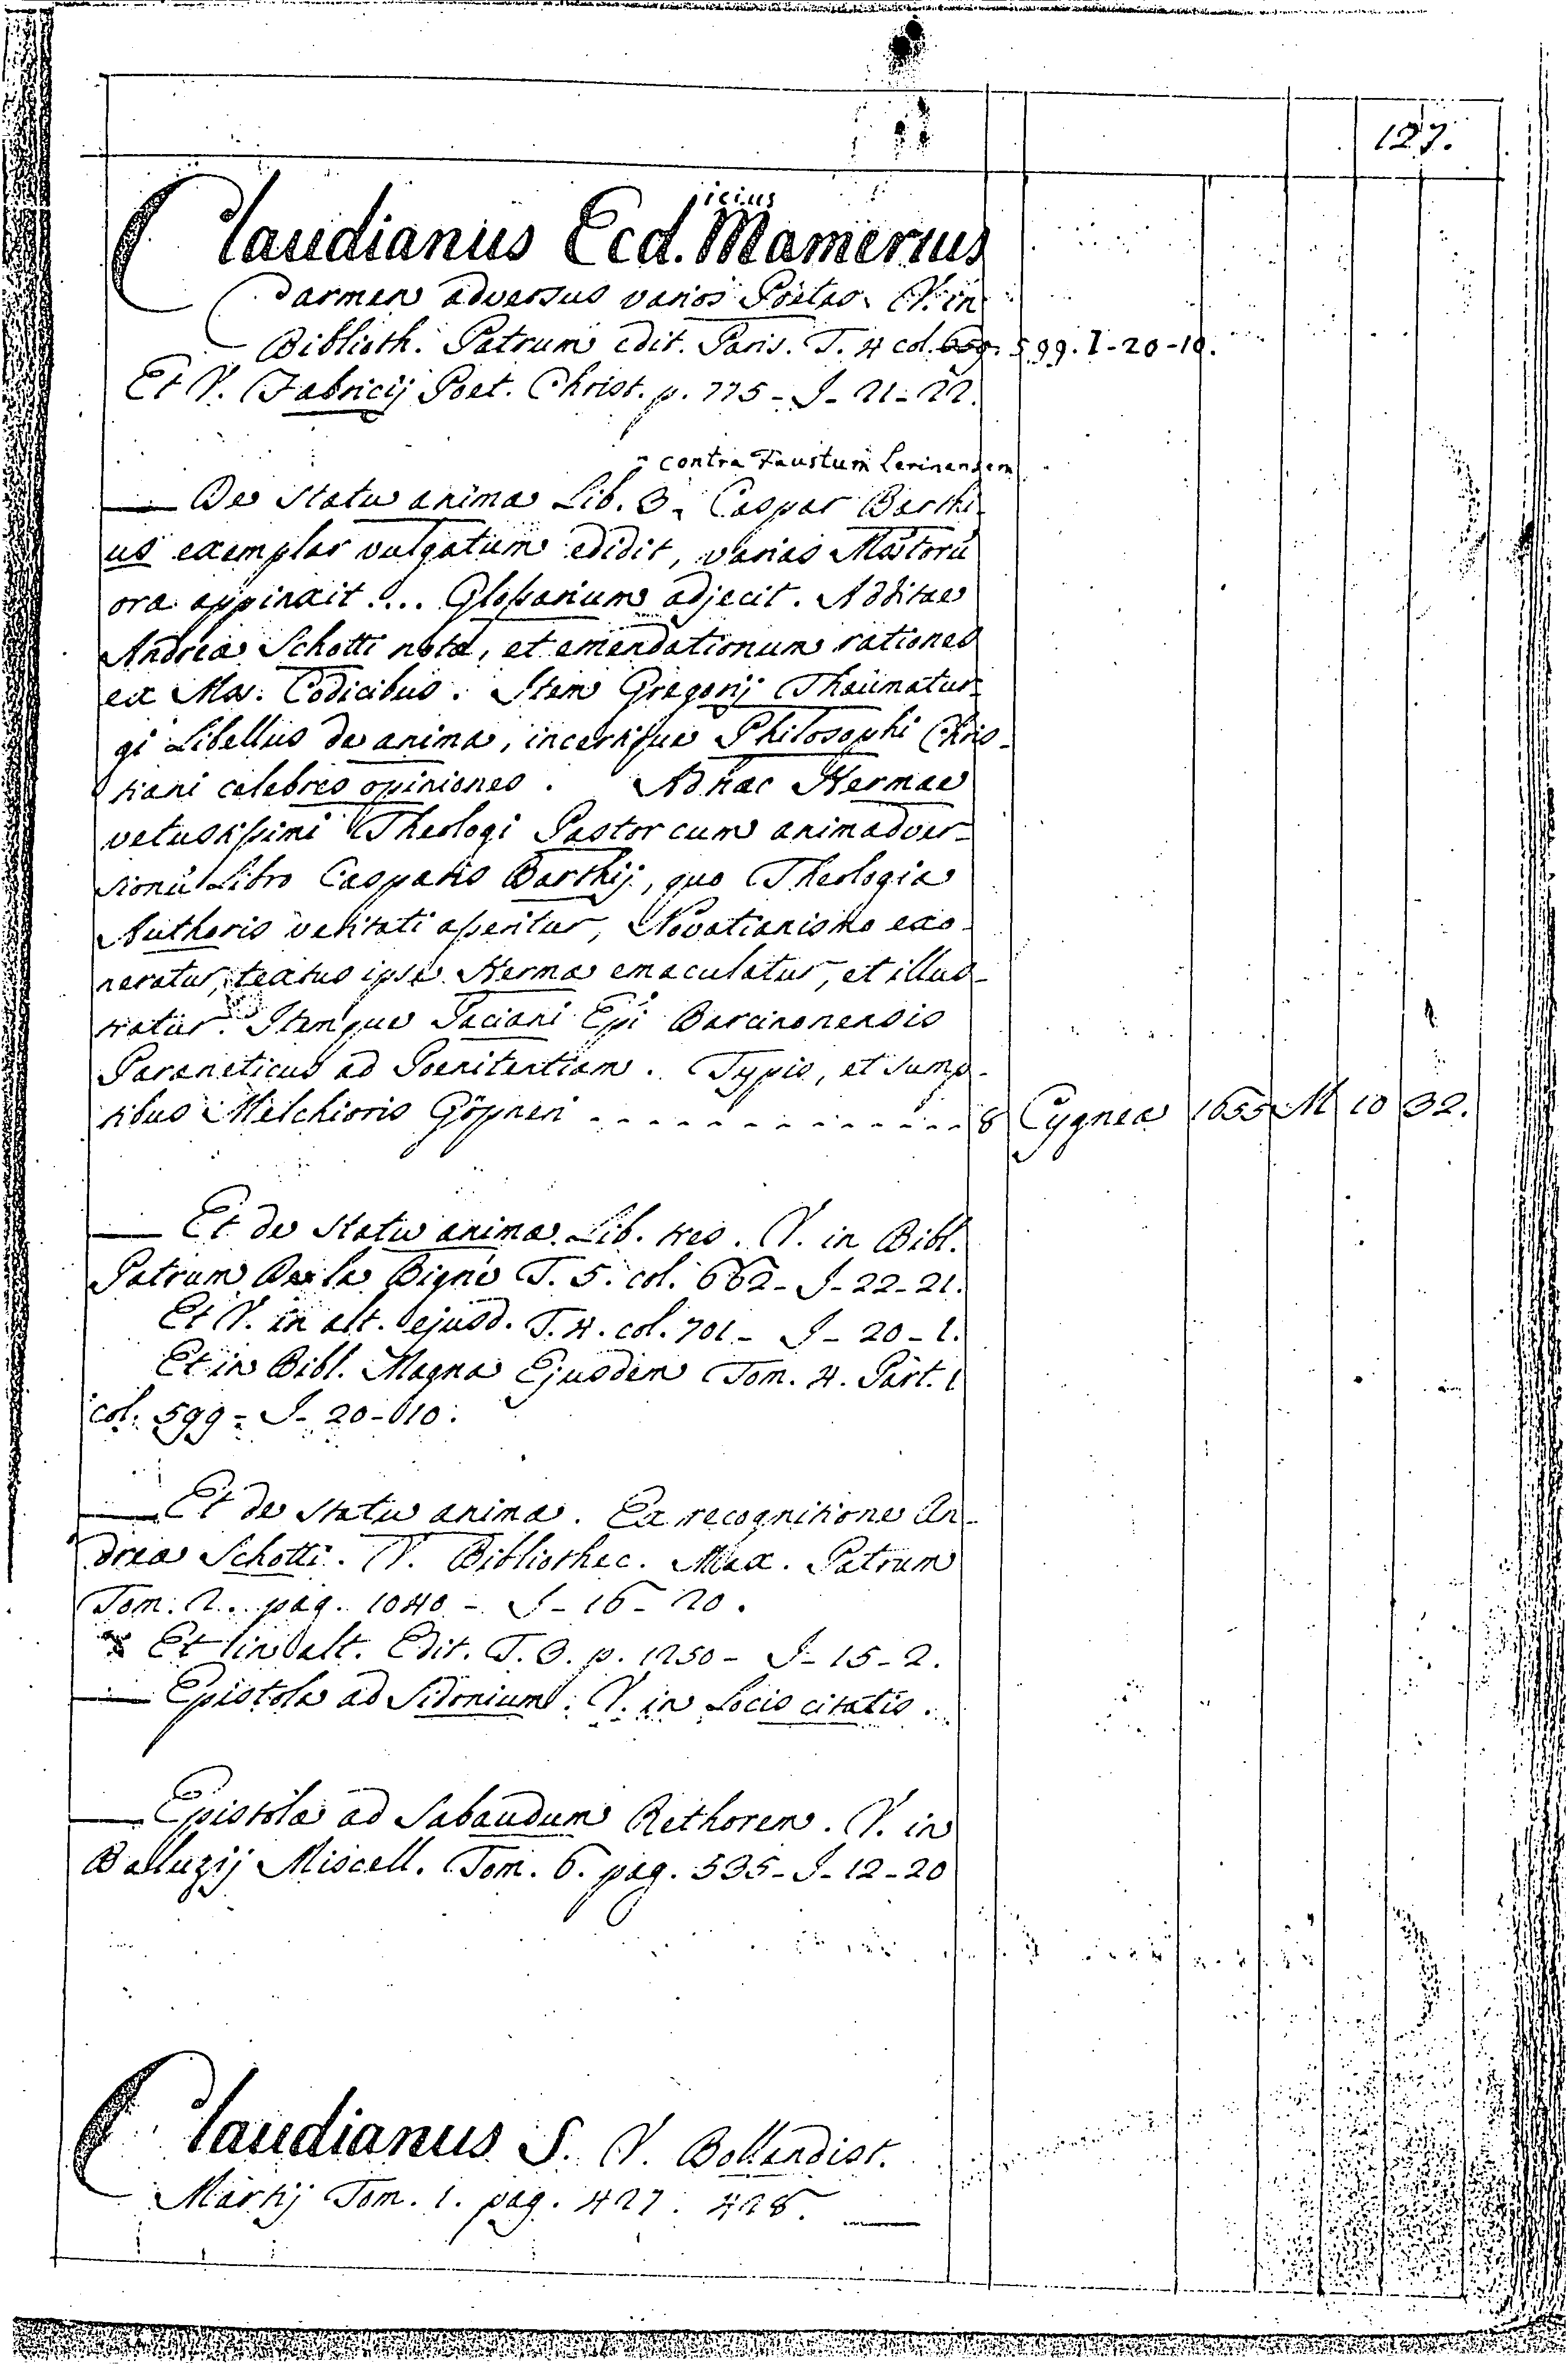 127.
icius
Claudianus Ecd. Mamertus
Carmen adversus varios Poëtas. V. in
Biblioth. Patrum edit. Paris. T. 4 col. 599. I-20-10.
Et V. Fabricij Poet. Christ. p. 775 - I - 21 - 22.
contra Faustum Lerinensem
— De Statu animæ Lib. 3. Caspar Barthi-
us exemplar vulgatum edidit, varias Mstorũ
ora appinxit.... Glossarium adjecit. Additae
Andreæ Schotti notæ, et emendationum rationes
ex Ms. Codicibus. Item Gregorij Thaumatur-
gi Libellus de anima, incertique Philosophi Chris-
tiani celebres opiniones. Ad hæc Hermae
vetustissimi Theologi Pastor cum animadver-
sionũ Libro Casparis Barthij, quo Theologia
Authoris veritati aperitur, Novatianismo exo-
neratur, textus ipse Hermæ emaculatur, et illus-
tratur. Itemque Paciani Epi Barcinonensis
Paræneticus ad Poenitentiam. Typis, et sump-
tibus Melchioris Göpneri - - - - - - - - - - - - - 8 Cygneæ 1655 M 10 32.
— Et de Statu animæ Lib. tres. V. in Bibl.
Patrum De la Bigne T. 5. col. 662 - I - 22 - 21.
Et V. in alt. ejusd. T. 4. col. 701 - I - 20 - 1.
Et in Bibl. Magna Ejusdem Tom. 4. Part. 1
col. 599 - I - 20 - 10.
— Et de Statu animæ. Ex recognitione An-
dreæ Schotti. V. Bibliothec. Max. Patrum
Tom. 2. pag. 1040 - I - 16 - 20.
Et in alt. Edit. T. 3. p. 1250 - I - 15 - 2.
— Epistola ad Sidonium. V. in Locis citatis.
— Epistola ad Sabaudum Rethorem. V. in
Balluzij Miscell. Tom. 6. pag. 535 - I - 12 - 20
Claudianus S. V. Bollandist.
Martij Tom. 1. pag. 427. 428. —